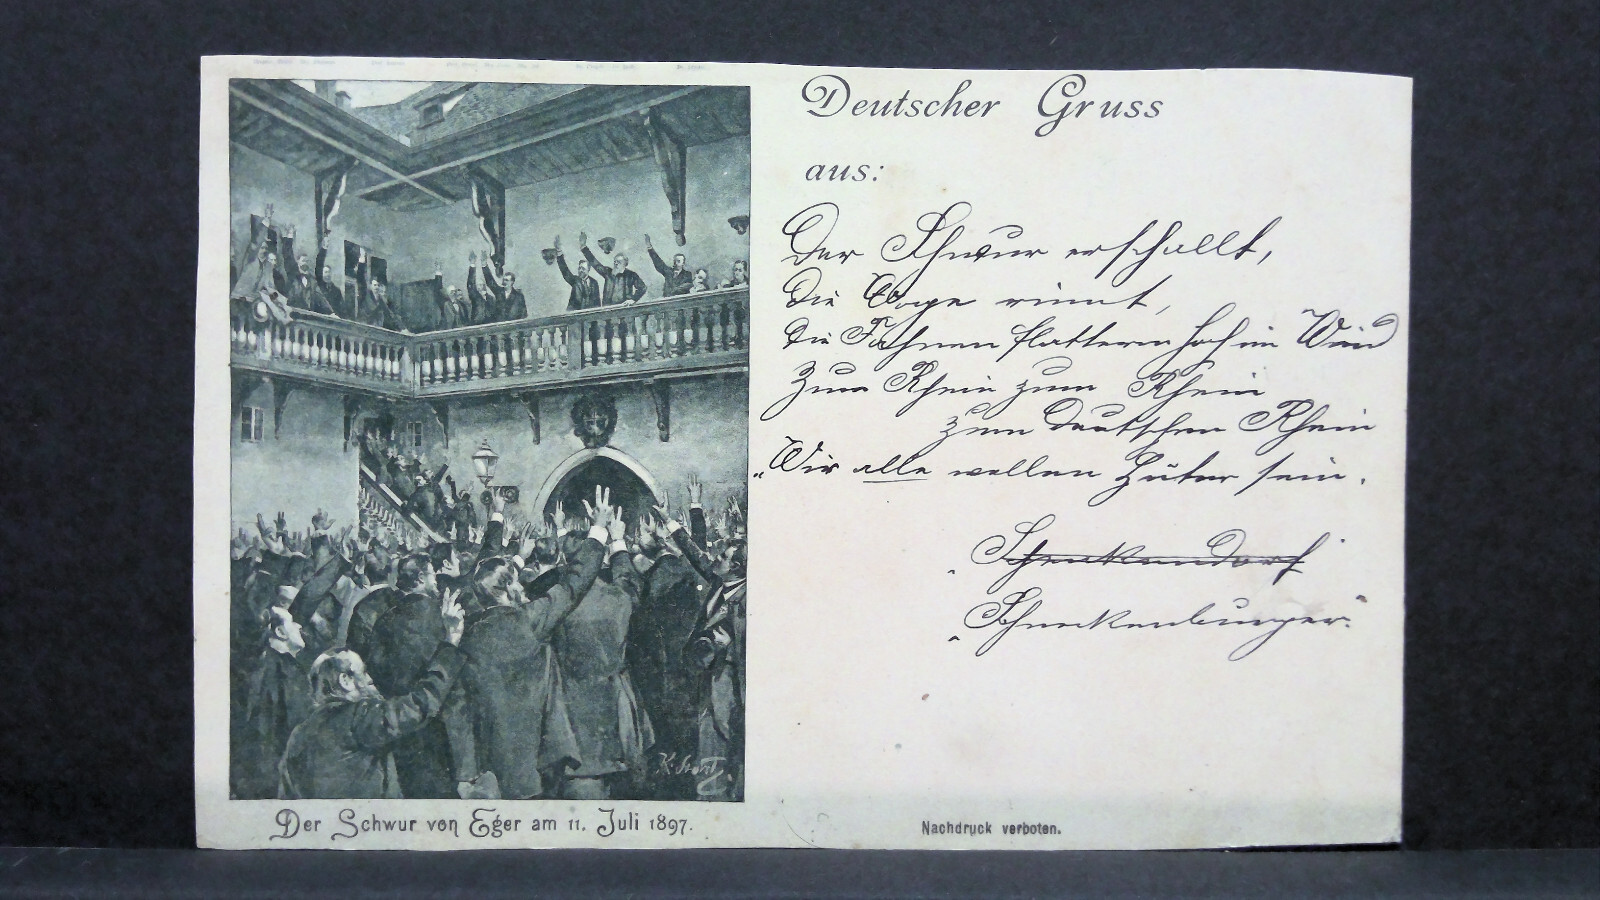 Deutscher Gruss
aus:
Der Schwur erschallt,
Die Woge rinnt,
Die Fahnen flattern hoch im Wind
Zum Rhein zum Rhein
zum Deutschen Rhein
„Wir alle wollen Hüter sein.
„Schenkendorf
„Schneckenburger.“
K. Storz
Der Schwur von Eger am 11. Juli 1897.
Nachdruck verboten.